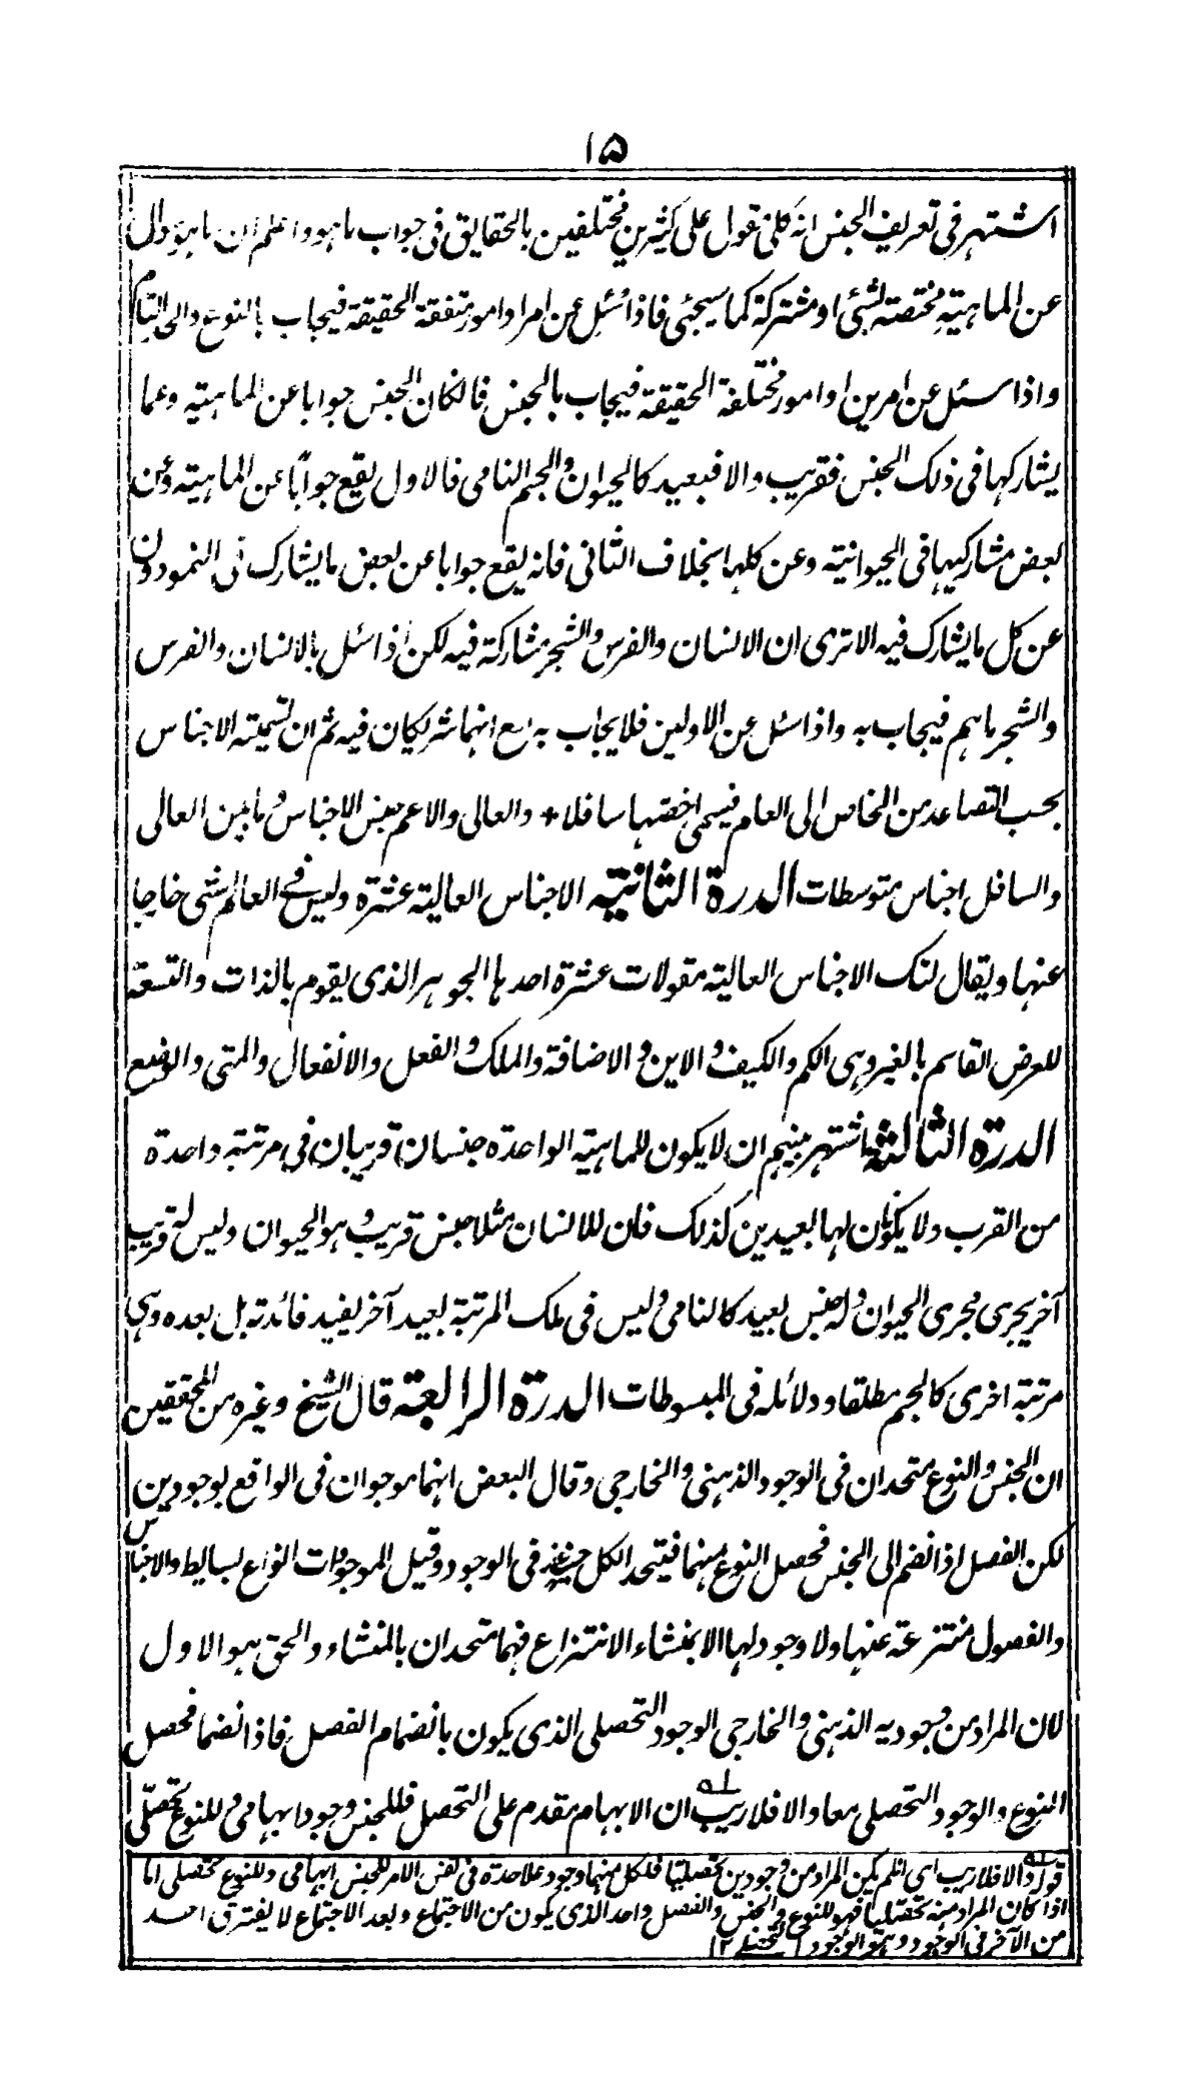 ١٥
اشتهر فى تعريف الجنس انه كلى مقول على كثيرين مختلفين بالحقايق فى جواب ما هو واعلم ان ما هو دال
عن الماهية مختصة لشئ او مشتركة كما سيجئ فاذا سئل عن امر او امور متفقة الحقيقة فيجاب بالنوع والى التام
واذا سئل عن امرين او امور مختلفة الحقيقة فيجاب بالجنس فالكان الجنس جوابا عن الماهية وعما
يشاركها فى ذلك الجنس فقريب والا فبعيد كالحيوان والجسم النامى فالاول يقع جوابا عن الماهية وعن
بعض مشاركيها فى الحيوانية وعن كلها بخلاف الثانى فانه يقع جوابا عن بعض ما يشارك فى النمو دون
عن كل ما يشارك فيه الا ترى ان الانسان والفرس والشجر مشاركة فيه لكن اذا سئل بالانسان والفرس
والشجر ما هم فيجاب به واذا سئل عن الاولين فلا يجاب به مع انهما شريكان فيه ثم ان تسمية الاجناس
بحسب التصاعد من الخاص الى العام فيسمى اخصها سافلا + والعالى والاعم جنس الاجناس وما بين العالى
والسافل اجناس متوسطات الدرة الثانية الاجناس العالية عشرة وليس فى العالم شى خارجا
عنها ويقال لتلك الاجناس العالية مقولات عشرة احدها الجوهر الذى يقوم بالذات والتسعة
للعرض القاسم بالغير وهى الكم والكيف والاين والاضافة والملك والفعل والانفعال والمتى والوضع
الدرة الثالثة اشتهر بينهم ان لا يكون للماهية الواحدة جنسان قريبان فى مرتبة واحدة
من القرب ولا يكون لها بعيدين كذلك فان للانسان مثلا جنس قريب وهو الحيوان وليس له قريب
آخر يجرى مجرى الحيوان وله جنس بعيد كالنامى وليس فى تلك المرتبة بعيد آخر يفيد فائدته بل بعده وهى
مرتبة اخرى كالجسم مطلقا ودلائله فى المبسوطات الدرة الرابعة قال الشيخ وغيره من المحققين
ان الجنس والنوع متحدان فى الوجود الذهنى والخارجى وقال البعض انهما موجوان فى الواقع بوجودين
لكن الفصل اذا انضم الى الجنس فحصل النوع منهما فيتحد الكل حينئذ فى الوجود وقيل الموجودات انواع بسايط والاجناس
والفصول منتزعة عنها ولا وجود لها الا بمنشاء الانتزاع فهما متحدان بالمنشاء والحق هو الاول
لان المراد من وجوديه الذهنى والخارجى الوجود التحصلى الذى يكون بانضمام الفصل فاذا انضما فحصل
النوع والوجود التحصلى معا والا فلا ريب ان الابهام مقدم على التحصل فللجنس وجود ابهامى وللنوع تحصلى
قوله والا فلا ريب اى ان لم يكن المراد من وجودين تحصليا فلكل منهما وجود علاحدة فى نفس الامر للجنس ابهامى وللنوع تحصلى اما
اذا كان المراد منه تحصليا فهو للنوع والجنس والفصل واحد الذى يكون من الاجتماع وبعد الاجتماع لا يفترق احد
من الآخر فى الوجود وهو الوجود التحصلى ١٢